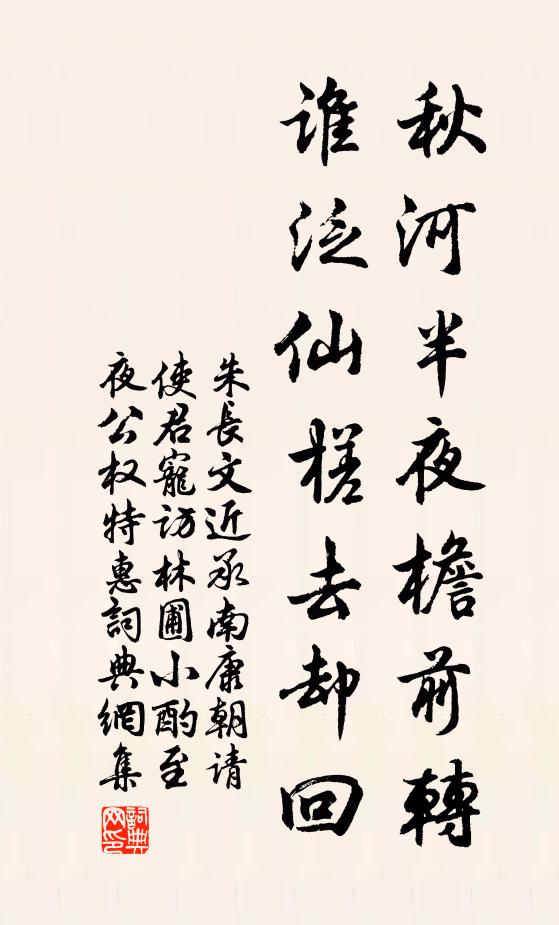 秋河半夜檐前轉
谁泛仙槎去却回
朱長文近承南康朝请
使君寵访林圃小酌至
夜公权特惠詞典網集
詞典网印